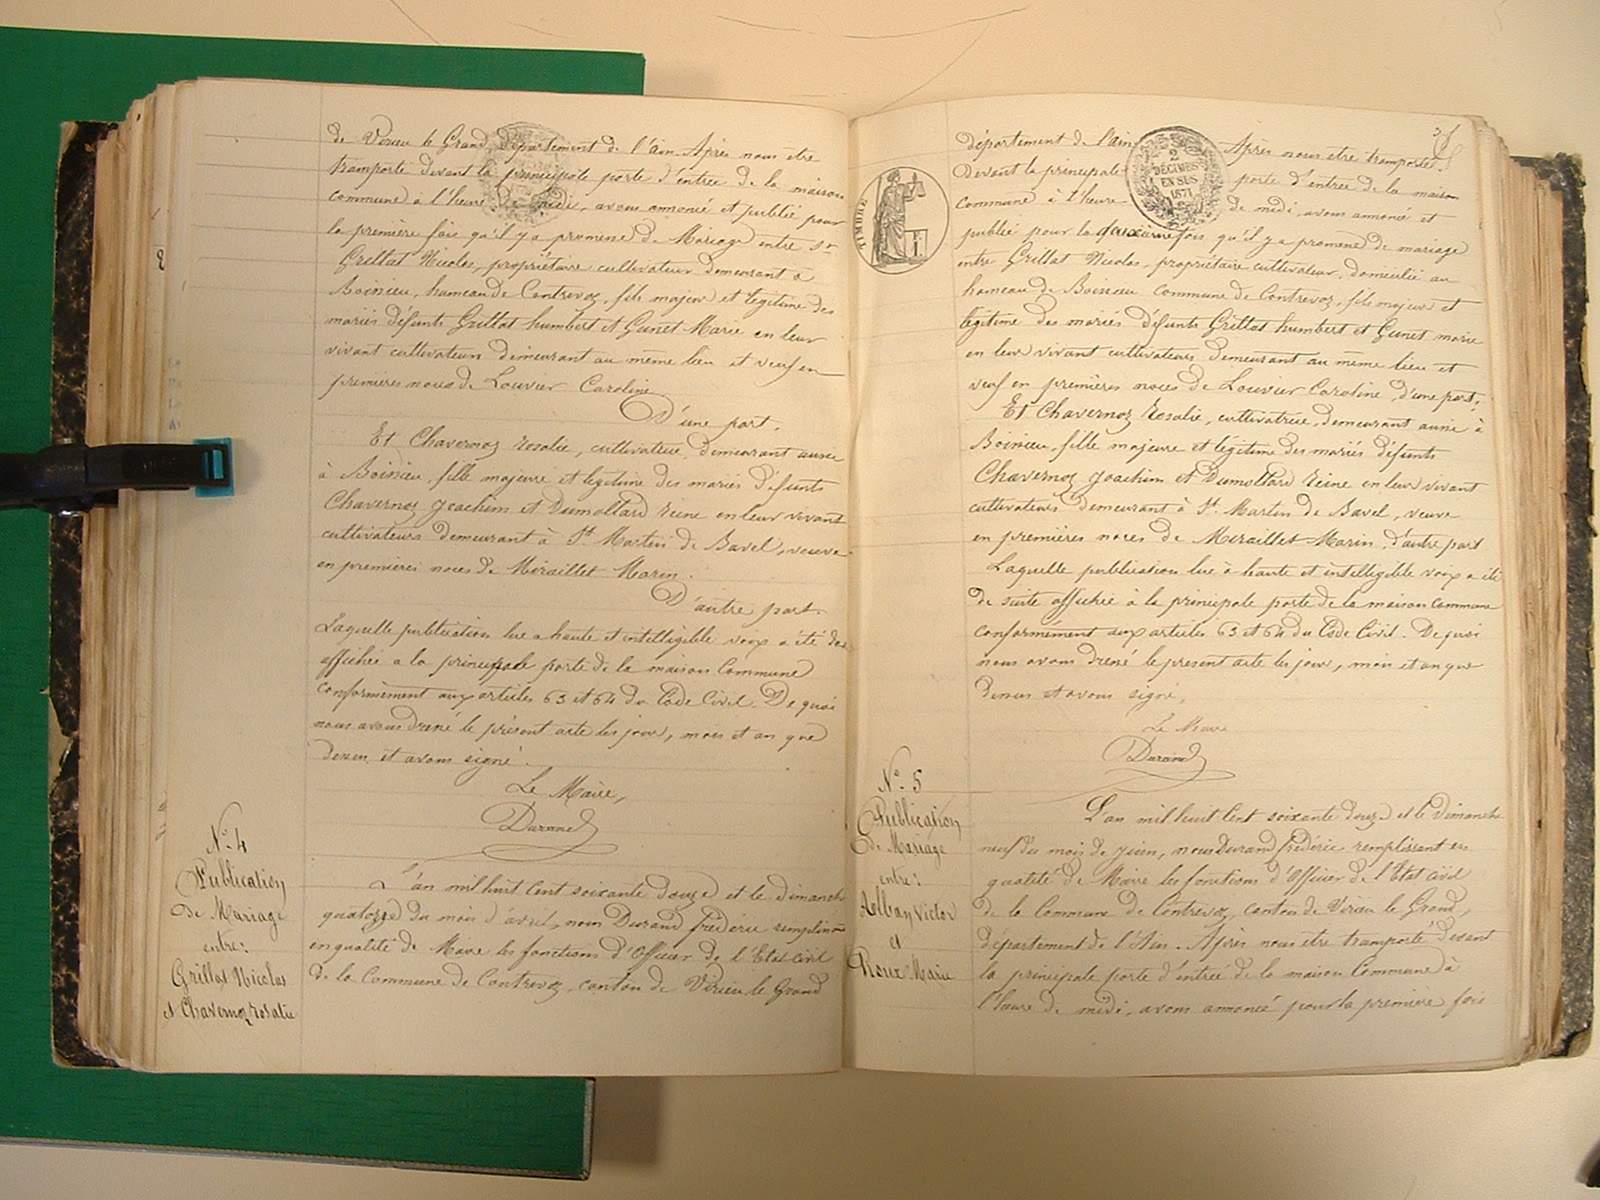 de Virieu le Grand, département de l'ain. Après nous être
transporté devant la principale porte d'entrée de la maison
commune à l'heure de midi, avons annoncé et publié pour
la première fois qu'il y a promesse de Mariage entre sr
Grillat Nicolas, propriétaire cultivateur demeurant à
Boissieu, hameau de Contrevoz, fils majeur et légitime des
mariés défunts Grillat humbert et Gunet Marie en leur
vivant cultivateurs demeurant au même lieu et veuf en
premières noces de Louvier Caroline
D'une part.
Et Chavernoz rosalie, cultivatrice, demeurant aussi
à Boissieu, fille majeure et légitime des mariés défunts
Chavernoz Joachim et Dumollard reine en leur vivant
cultivateurs demeurant à St Martin de Bavel, veuve
en premières noces de Miraillet Marin.
D'autre part.
Laquelle publication lue a haute et intelligible voix a été de
affichée a la principale porte de la maison Commune
conformément aux articles 63 et 64 du Code Civil. De quoi
nous avons dressé le présent acte les jour, mois et an que
dessus et avons signé.
Le Maire,
Durand
No 4
Publication
de Mariage
entre:
Grillat Nicolas
et Chavernoz rosalie
L'an mil huit cent soixante douze et le dimanche
quatorze du mois d'avril, nous Durand frédéric remplissant
en qualité de Maire les fonctions d'Officier de l'Etat civil
de la Commune de Contrevoz, canton de Virieu le Grand
département de l'ain Après nous être transporté
devant la principale porte d'entrée de la maison
Commune à l'heure de midi, avons annoncé et
publié pour la deuxième fois qu'il y a promesse de mariage
entre Grillat Nicolas, propriétaire cultivateur, domicilié au
hameau de Boissieu Commune de Contrevoz, fils majeur et
légitime des mariés défunts Grillat humbert et Gunet marie
en leur vivant cultivateurs demeurant au même lieu et
veuf en premières noces de Louvier Caroline, d'une part;
Et Chavernoz rosalie, cultivatrice, demeurant aussi à
Boissieu, fille majeure et légitime des mariés défunts
Chavernoz Joachim et Dumollard reine en leur vivant
cultivateurs demeurant à St Martin de Bavel, veuve
en premières noces de Miraillet Marin, d'autre part
Laquelle publication lue à haute et intelligible voix a été
de suite affichée à la principale porte de la maison Commune
conformément aux articles 63 et 64 du Code Civil. De quoi
nous avons dressé le présent acte les jour, mois et an que
dessus et avons signé.
Le Maire
Durand
2
DÉCIMES
EN SUS
1871
TIMBRE
No 5
Publication
de Mariage
entre:
Alban Victor
et
Roux Marie
L'an mil huit Cent soixante douze et le dimanche
neuf du mois de juin, nous Durand frédéric remplissant en
qualité de Maire les fonctions d'Officier de l'Etat civil
de la Commune de Contrevoz, canton de Virieu le Grand,
département de l'Ain. Après nous être transporté devant
la principale porte d'entrée de la maison Commune à
l'heure de midi, avons annoncé pour la première fois